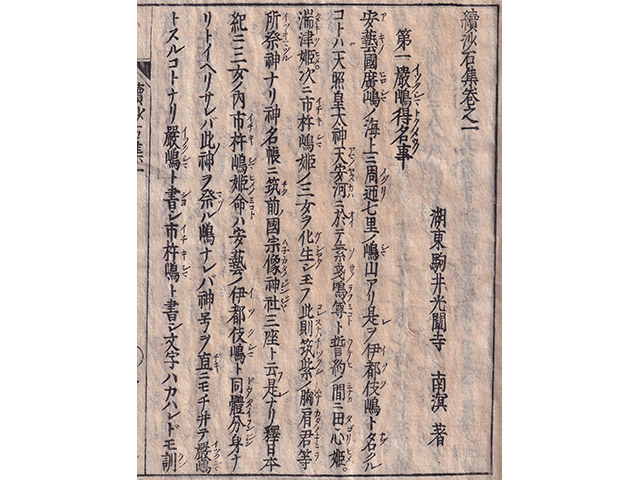 續沙石集卷之一
湖東駒井光闡寺 南溟 著
第一嚴嶋得名事
安藝國廣嶋ノ海上ニ周廻七里ノ嶋山アリ是ヲ伊都伎嶋ト名クル
コトハ天照皇太神天安河ニ於テ素戔嗚尊ト誓約ノ間ニ田心姫。
湍津姫。次ニ市杵嶋姫ノ三女ヲ化生シ玉フ此則筑紫ノ胸肩君等
所祭神ナリ神名帳ニ筑前國宗像神社三座ト云是ナリ釋日本
紀ニ三女ノ內市杵嶋姫命ハ安藝ノ伊都伎嶋ト同體分身ナ
リトイヘリサレバ此神ヲ祭ル嶋ナレバ神号ヲ直ニモチ井テ嚴嶋
トスルコトナリ嚴嶋ト書シ市杵嶋ト書シ文字ハカハレドモ訓